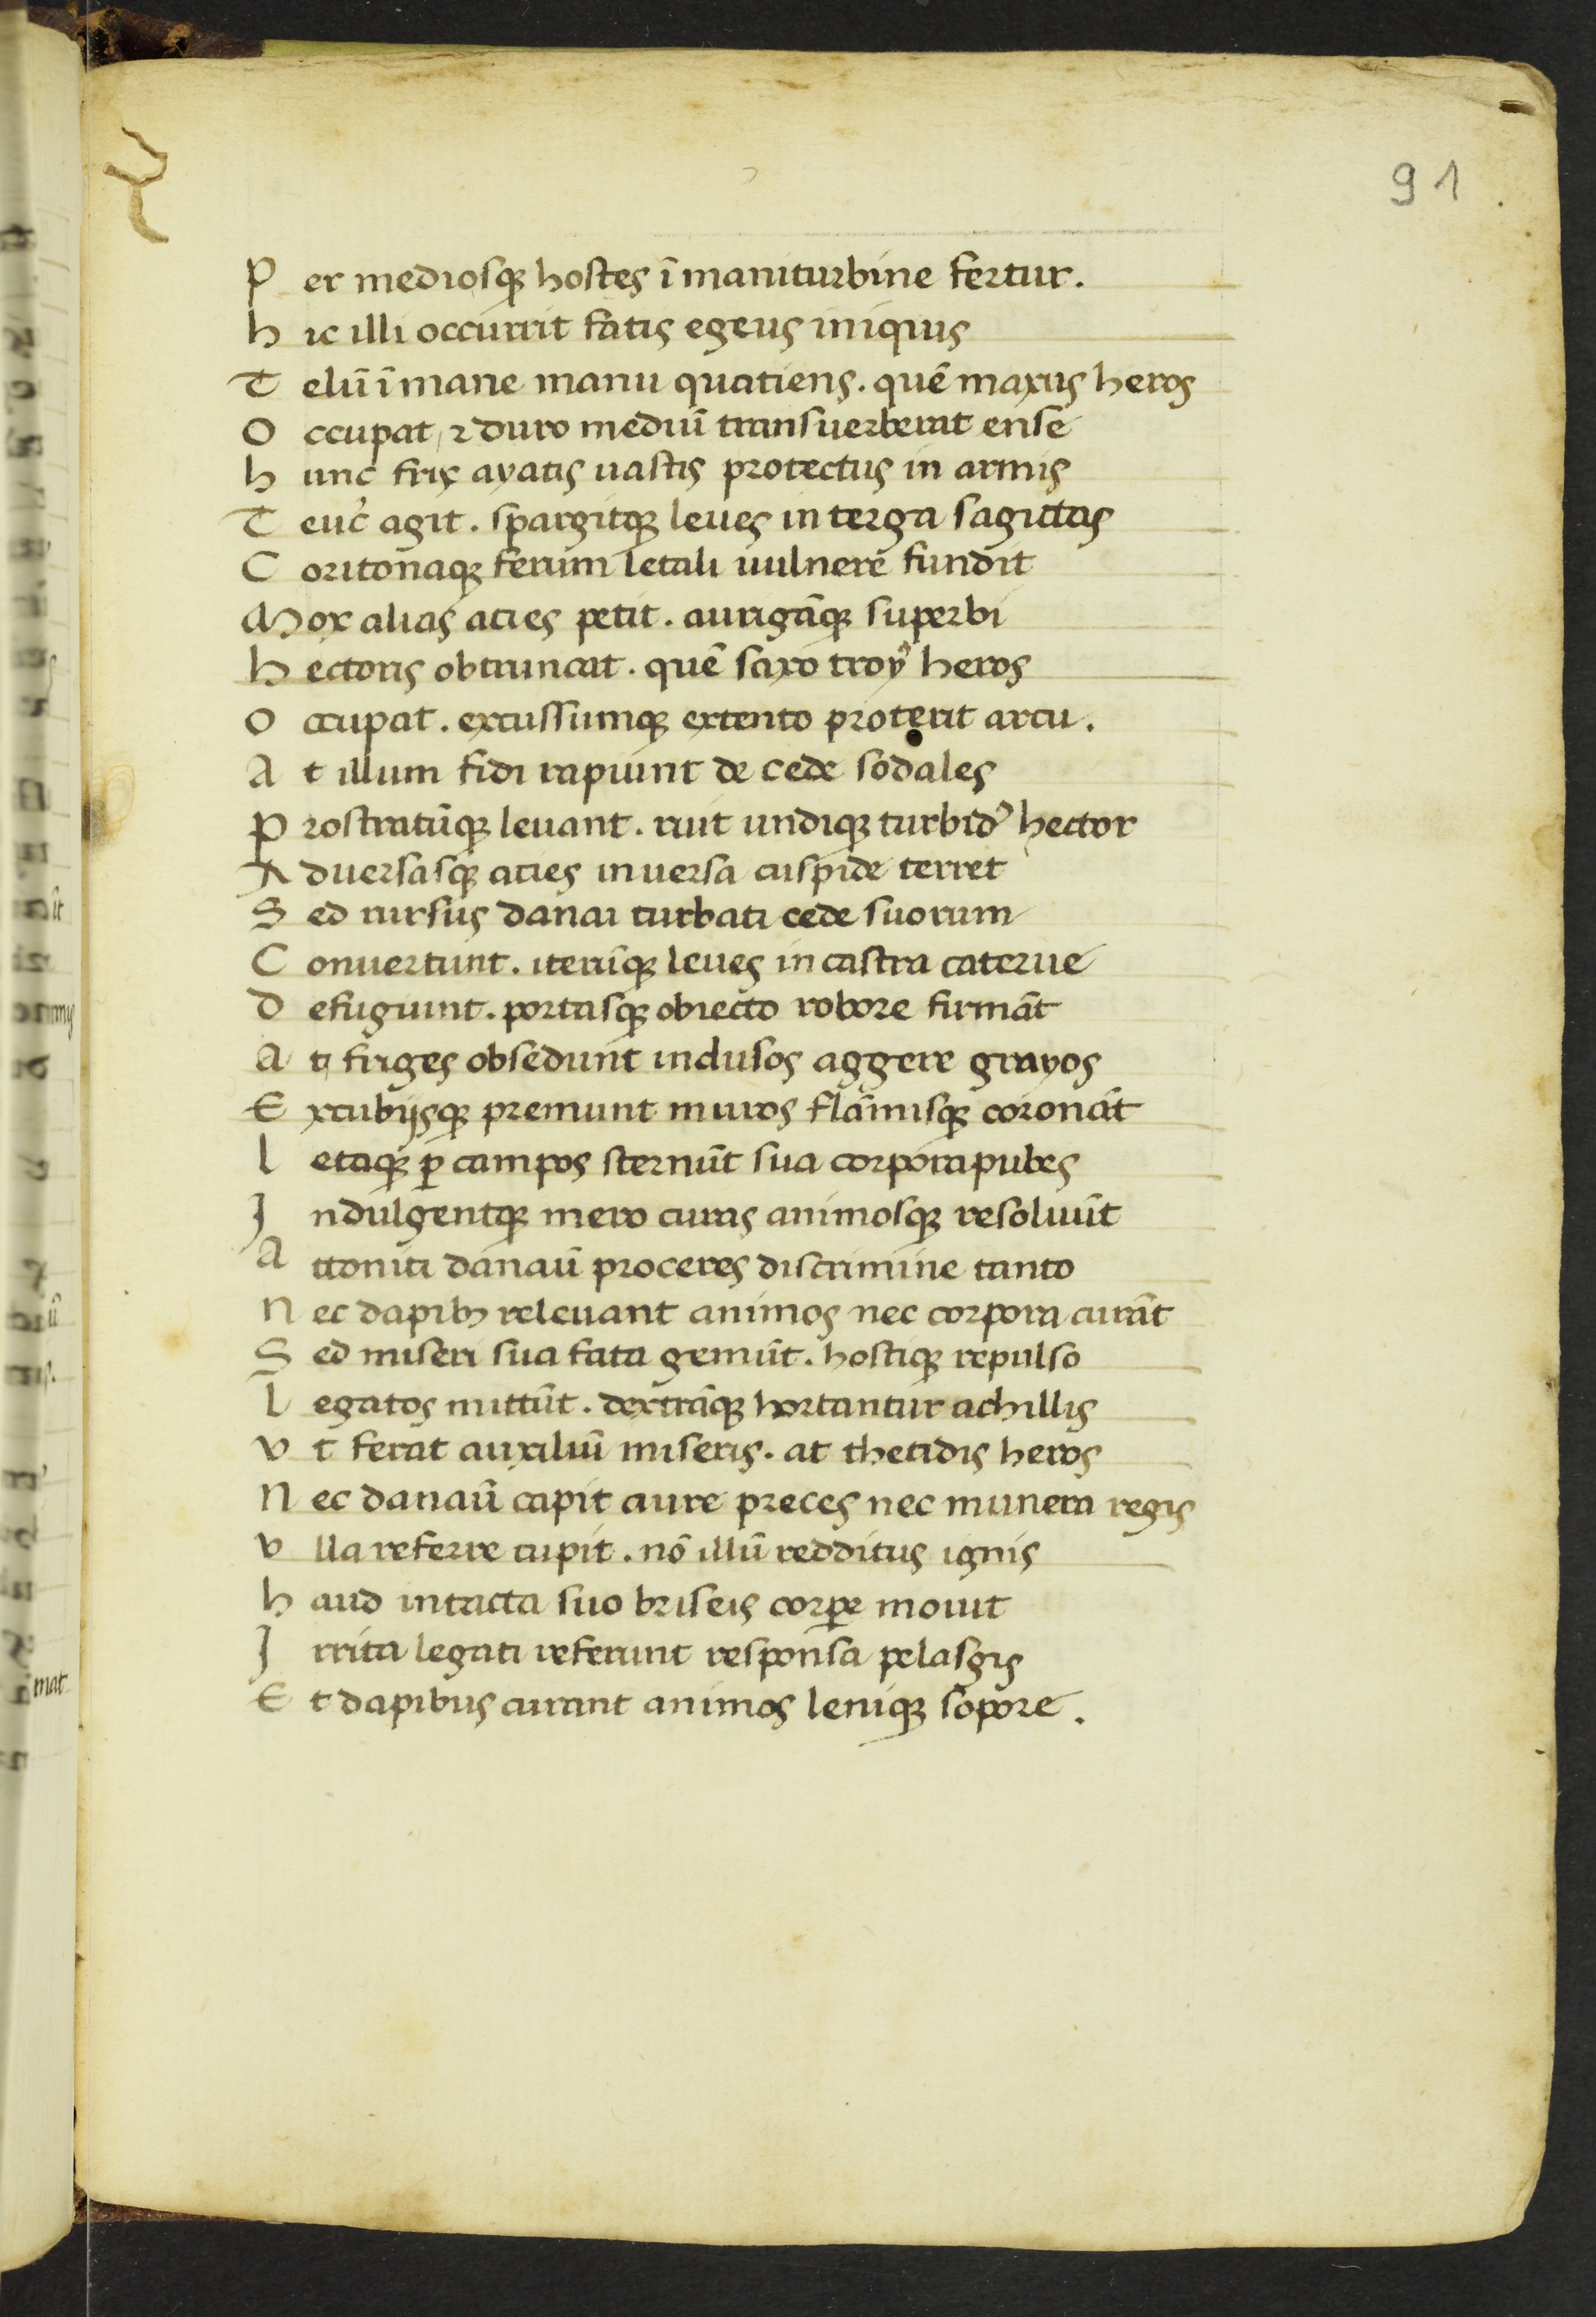 91
P er mediosqꝫ hostes ī maniturbine fertur.
h ic illi occurrit fatis egeus iniqius
T elū ī mane manu quatiens. quē maxus heros
O ccupat, ⁊ duro mediū transuerberat ense
h unc frix ayatis uastis protectus in armis
T euc̉ agit. spargitqꝫ leues in terga sagittas
C oritonaqꝫ ferum letali uulnere fundit
M ox alias acies petit. aurigāqꝫ superbi
h ectoris obtruncat. quē saxo troyꝰ heros
O ccupat. excussumqꝫ extento proterit arcu.
A t illum fidi rapiunt de cede sodales
P rostratūqꝫ leuant. ruit undiqꝫ turbidꝰ hector
A duersasqꝫ acies inuersa cuspide terret
S ed rursus danai turbati cede suorum
C onuertunt. iterūqꝫ leues in castra caterue
D efugiunt. portasqꝫ obiecto robore firmāt
A t friges obsedunt inclusos aggere grayos
E xcubijsqꝫ premunt muros flāmisqꝫ coronāt
l etaqꝫ ꝑ campos sternūt sua corpora pubes
J ndulgentqꝫ mero curas animosqꝫ resoluūt
A ttoniti danaū proceres discrimine tanto
N ec dapibꝫ releuant animos nec corpora curāt
S ed miseri sua fata gemūt. hostiqꝫ repulso
l egatos mittūt. dextrāqꝫ hortantur achillis
v t ferat auxiliū miseris. at thetidis heros
N ec danaū capit aure preces nec munera regis
v lla referre cupit. nō illū redditus ignis
h aud intacta suo briseis corꝑe mouit
J rrita legati referunt responsa pelasgis
E t dapibus curant animos leniqꝫ sopore.